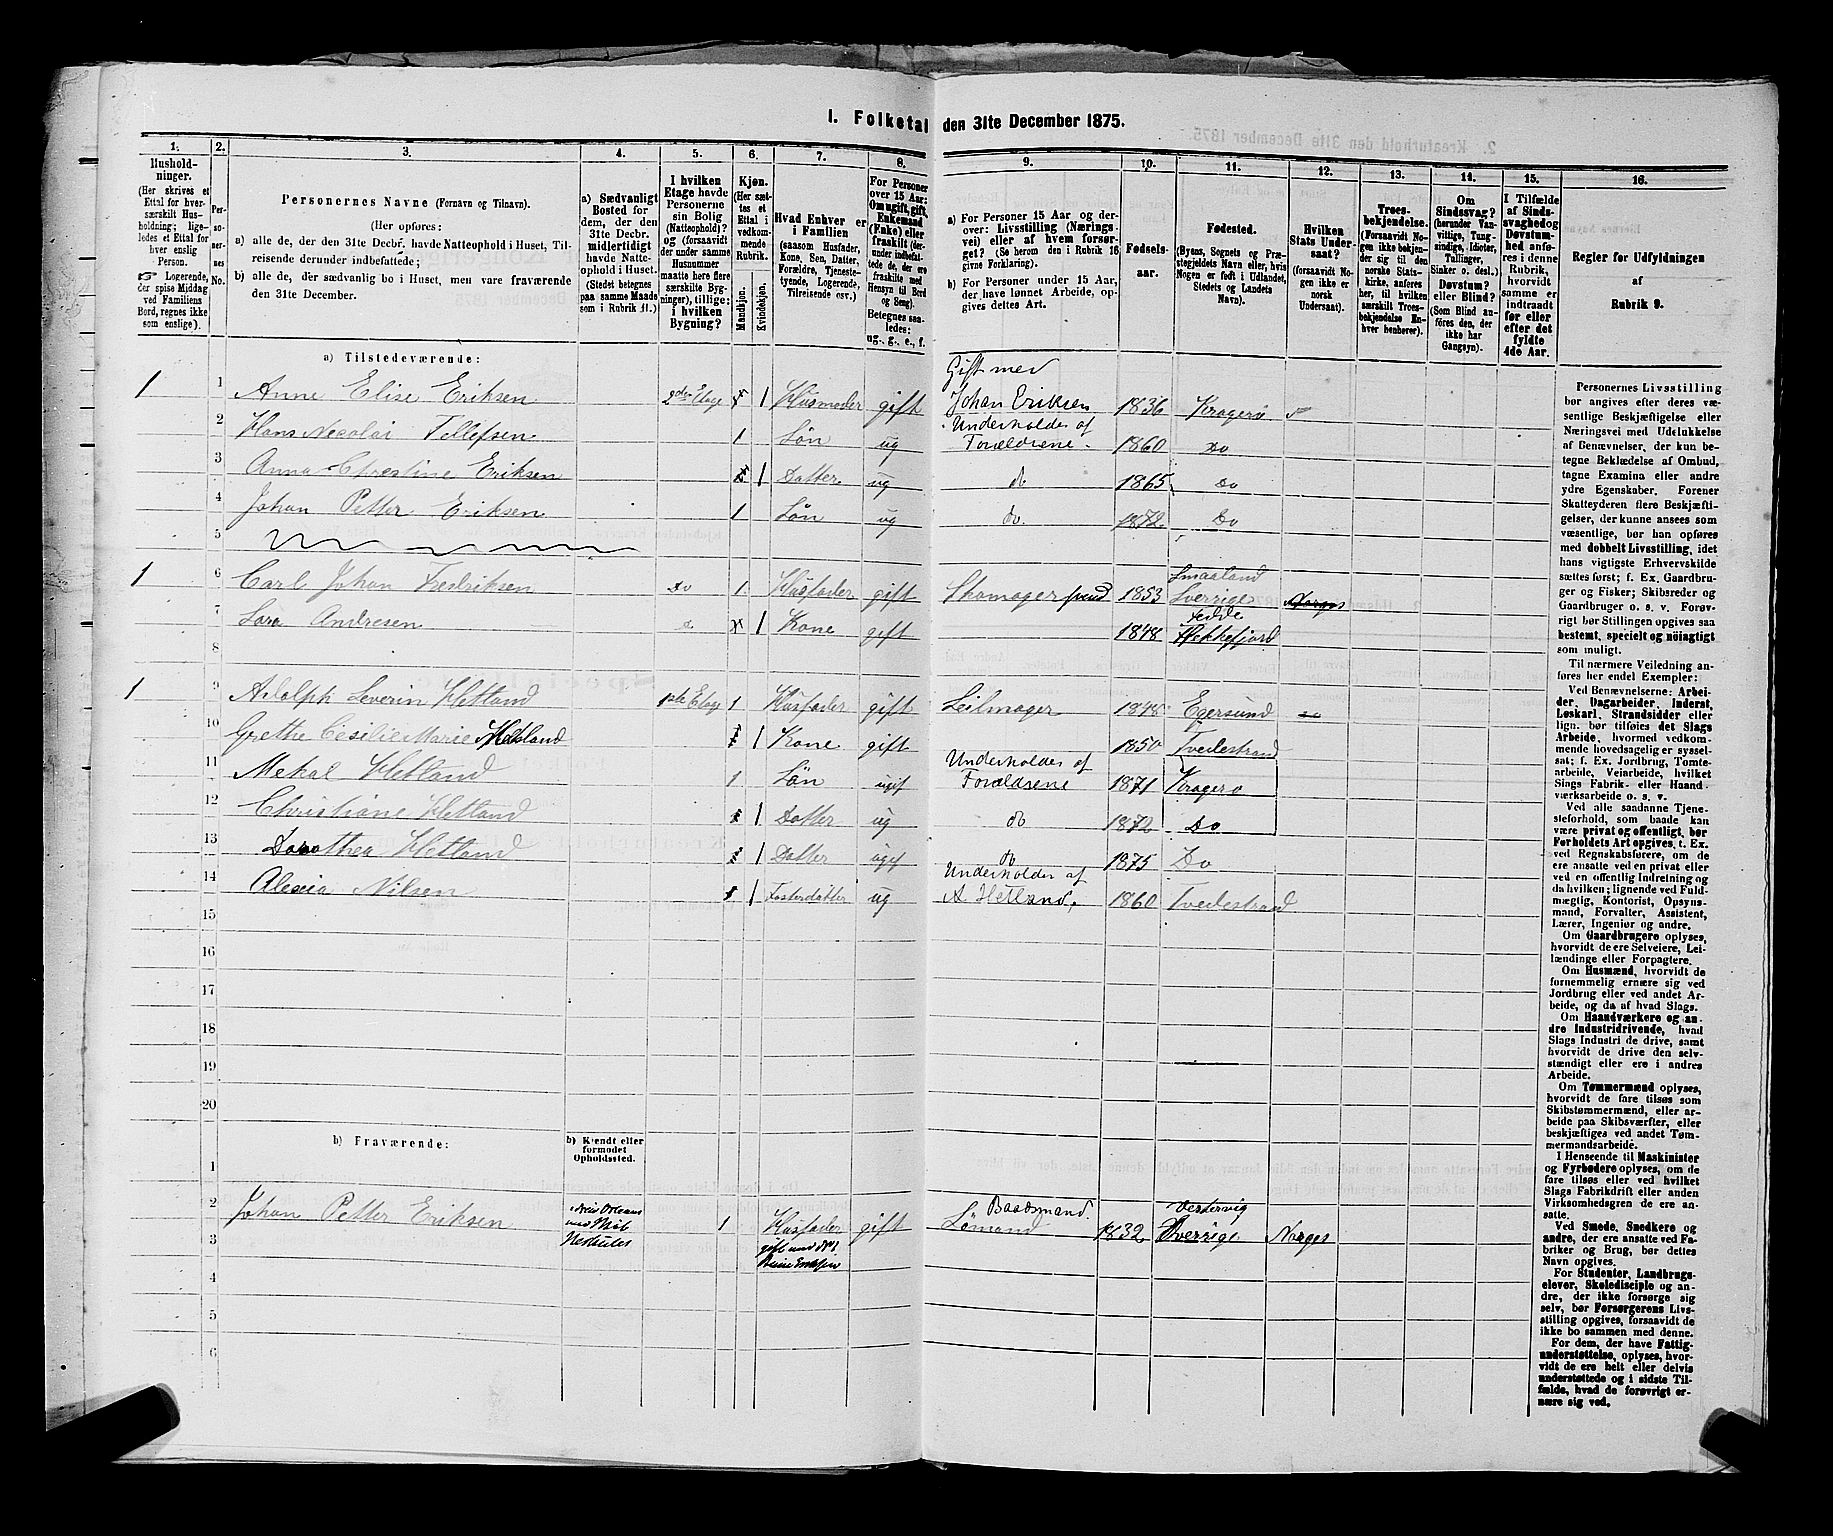 1. Folketal den 31te December 1875.
1. 2. 3. 4. 5. 6. 7. 8. 9. 10. 11. 12. 13. 14. 15. 16.
Hushold-
ninger.
(Her skrives et
Ettal for hver-
særskilt Hus-
holdning; lige-
ledes et Ettal for
hver enslig
Person.
Logerende,
der spise Middag
ved Familiens
Bord, regnes ikke
som enslige).
Per-
so-
ner-
nes
No.
Personernes Navne (Fornavn og Tilnavn).
(Her opføres:
a) alle de, der den 31te Decbr. havde Natteophold i Huset, Til-
reisende derunder indbefattede;
b) alle de, der sædvanlig bo i Huset, men vare fraværende
den 31te December.
a) Sædvanligt
Bosted for
dem, der den
31te Decbr.
midlertidigt
havde Natte-
ophold i Huset.
(Stedet betegnes
paa samme Maade
som i Rubrik 11.)
I hvilken
Etage havde
Personerne
sin Bolig
(Natteophold)?
og (forsaavidt
der under samme
Husnummer
maatte høre flere
særskilte Byg-
ninger), tillige:
i hvilken
Bygning?
Kjøn.
(Her sæt-
tes et
Ettal i
vedkom-
mende
Rubrik.
Mandkjøn.
Kvindekjøn.
Hvad Enhver er
i Familien
(saasom Husfader,
Kone, Søn, Datter,
Forældre, Tjeneste-
tyende, Logerende,
Tilreisende osv.)
For Personer
over 15 Aar:
Om ugift, gift,
Enkemand
(Enke) eller
fraskilt (der-
under indbefat-
tede de, der ere
fraskilte med
Hensyn til Bord
og Seng).
Betegnes saa-
ledes:
ug., g., e., f.
a) For Personer 15 Aar og der-
over: Livsstilling (Nærings-
vei) eller af hvem forsør-
get? (Se herom den i Rubrik 16
givne Forklaring).
b) For Personer under 15 Aar,
der have lønnet Arbeide, op-
gives dettes Art.
Fødsels-
aar.
Fødested.
(Byens, Sognets og Præ-
stegjeldets Navn eller, hvis
Nogen er født i Udlandet,
Stedets og Landets
Navn).
Hvilken
Stats Under-
saat?
(forsaavidt No-
gen ikke er
norsk
Undersaat).
Troes-
bekjendelse.
(Forsaavidt No-
gen ikke bekjen-
der sig til den
norske Stats-
kirke, anføres
her, til hvilken
særskilt Troes-
bekjendelse En-
hver henhører).
Om
Sindssvag?
(herunder Van-
vittige, Tung-
sindige, Idioter,
Tullinger,
Sinker o. desl.)
Døvstum?
eller Blind?
(Som Blind an-
føres den, der
ikke har
Gangsyn).
I Tilfælde
af Sinds-
svaghed og
Døvstum-
hed anfø-
res i denne
Rubrik,
hvorvidt
samme er
indtraadt
før eller
efter det
fyldte
4de Aar.
Regler for Udfyldningen
af
Rubrik 9.
a) Tilstedeværende:
Gift med
1 1 Anne Elise Eriksen 2den Etage 1 Husmoder gift Johan Eriksen 1836 Kragerø
2 Hans Nicolai Tellefsen 1 Søn ug Underholdes af Forældrene 1860 Do
3 Anna Chrestine Eriksen 1 Datter ug do 1865 Do
4 Johan Petter Eriksen 1 Søn ug do. 1872 Do
5
1 6 Carl Johan Fredriksen Do 1 Husfader gift Skomager svend 1853 Smaaland Sverrige Norges
7 Sara Andresen 1 Kone gift 1848 Fedde Flekkefjord
8
1 9 Adolph Severin Hetland 1ste Etage 1 Husfader gift Seilmager 1848 Egersund
10 Grethe Cesilie Marie Hetland 1 Kone gift 1850 Tvedestrand
11 Mekal Hetland 1 Søn ugif Underholdes af Forældrene 1871 Kragerø
12 Christiane Hetland 1 Datter ug do 1872 Do
13 Dorothea Hetland 1 Datter ugif do 1875 Do
14 Alesia Nilsen 1 Fosterdatter ug Underholdes af A. Hetland, 1860 Tvedestrand
15
16
17
18
19
20
b) Fraværende:
b) Kjendt eller
formodet
Opholdssted.
1
2 Johan Petter Eriksen New Orleans med Skib Herkules 1 Husfader gift Baadsmand. Sømand 1832 Vestervig Sverrige Norges
3 gift med No 1
4
5
6
Personernes Livsstilling
bør angives efter deres væ-
sentlige Beskjæftigelse eller
Næringsvei med Udelukkelse
af Benævnelser, der kun be-
tegne Beklædelse af Ombud,
tagne Examina eller andre
ydre Egenskaber. Forener
Skatteyderen flere Beskjæfti-
gelser, der kunne ansees som
væsentlige, bør han opføres
med dobbelt Livsstilling, idet
hans vigtigste Erhvervskilde
sættes først; f. Ex. Gaardbru-
ger og Fisker; Skibsreder og
Gaardbruger o. s. v. Forøv-
rigt bør Stillingen opgives saa
bestemt, specielt og nöiagtigt
som muligt.
Til nærmere Veiledning an-
føres her endel Exempler:
Ved Benævnelserne: Arbei-
der, Dagarbeider, Inderst,
Løskarl, Strandsidder eller
lign. bør tilføies det Slags
Arbeide, hvormed vedkom-
mende hovedsagelig er syssel-
sat; f. Ex. Jordbrug, Tomte-
arbeide, Veiarbeide, hvilket
Slags Fabrik- eller Haand-
værksarbeide o. s. v.
Ved alle saadanne Tjene-
steforhold, som baade kan
være privat og offentligt, bør
Forholdets Art opgives, t. Ex.
ved Regnskabsførere, om de
ere ansatte ved en privat eller
ved en offentlig Indretning og
da hvilken; lignende ved Fuld-
mægtig, Kontorist, Opsyns-
mand, Forvalter, Assistent,
Lærer, Ingeniør og andre.
Om Gaardbrugere oplyses,
hvorvidt de ere Selveiere, Lei-
lændinge eller Forpagtere.
Om Husmænd, hvorvidt de
fornemmelig ernære sig ved
Jordbrug eller ved andet Ar-
beide, og da af hvad Slags.
Om Haandværkere og an-
dre Industridrivende, hvad
Slags Industri de drive, samt
hvorvidt de drive den selv-
stændigt eller ere i andres
Arbeide.
Om Tømmermænd oplyses,
hvorvidt de fare tilsøs som
Skibstømmermænd, eller ar-
beide paa Skibsværfter, eller
beskjæftiges ved andet Tøm-
mermandsarbeide.
I Henseende til Maskinister
og Fyrbødere oplyses, om de
fare tilsøs eller ved hvilket
Slags Fabrikdrift eller anden
Virksomhedsgren de ere an-
satte.
Ved Smede, Snedkere og
andre, der ere ansatte ved Fa-
briker og Brug, bør dettes
Navn opgives.
For Studenter, Landbrugs-
elever, Skoledisciple og an-
dre, der ikke forsørge sig
selv, bør Forsørgerens Livs-
stilling opgives, forsaavidt de
ikke bo sammen med denne.
For dem, der have Fattig-
understøttelse, oplyses, hvor-
vidt de ere helt eller delvis
understøttede og i sidste Til-
fælde, hvad de forøvrigt er-
nære sig ved.